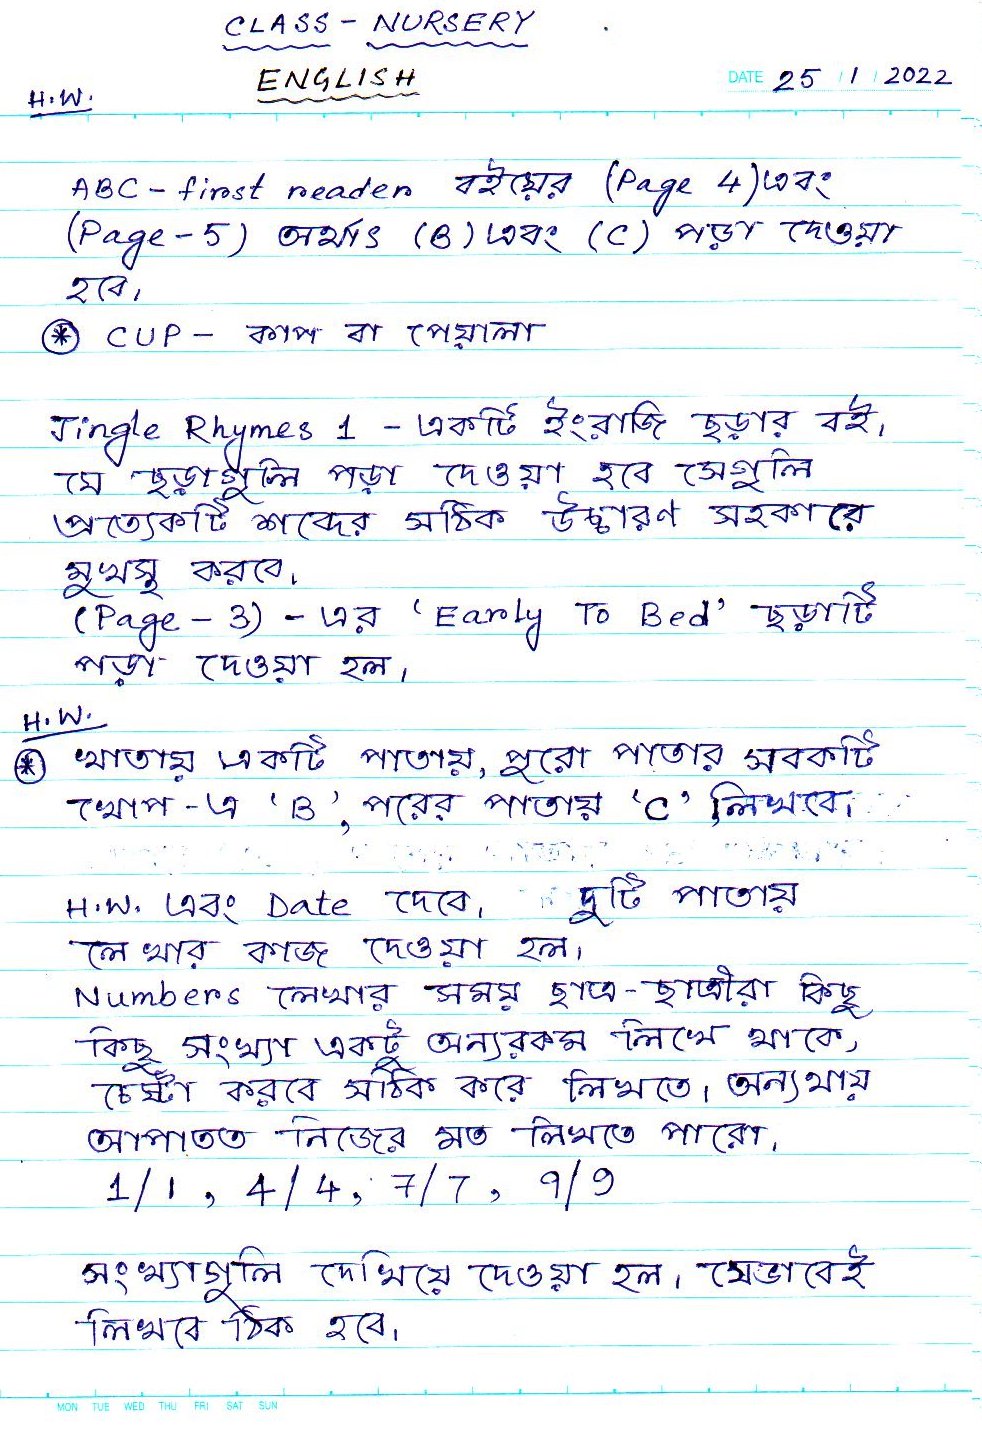 CLASS - NURSERY
ENGLISH
DATE 25 / 1 / 2022
H.W.
ABC - first reader বইয়ের (Page 4) এবং
(Page - 5) অর্থাৎ (B) এবং (C) পড়া দেওয়া
হবে।
* CUP - কাপ বা পেয়ালা
Jingle Rhymes 1 - একটি ইংরাজি ছড়ার বই।
যে ছড়াগুলি পড়া দেওয়া হবে সেগুলি
প্রত্যেকটি শব্দের সঠিক উচ্চারণ সহকারে
মুখস্থ করবে।
(Page - 3) - এর 'Early To Bed' ছড়াটি
পড়া দেওয়া হল।
H.W.
* খাতায় একটি পাতায়, পুরো পাতার সবকটি
খোপ - এ 'B', পরের পাতায় 'C' লিখবে।
H.W. এবং Date দেবে। দুটি পাতায়
লেখার কাজ দেওয়া হল।
Numbers লেখার সময় ছাত্র-ছাত্রীরা কিছু
কিছু সংখ্যা একটু অন্যরকম লিখে থাকে,
চেষ্টা করবে সঠিক করে লিখতে। অন্যথায়
আপাতত নিজের মত লিখতে পারো।
1/1, 4/4, 7/7, 9/9
সংখ্যাগুলি দেখিয়ে দেওয়া হল। যেভাবেই
লিখবে ঠিক হবে।
MON TUE WED THU FRI SAT SUN